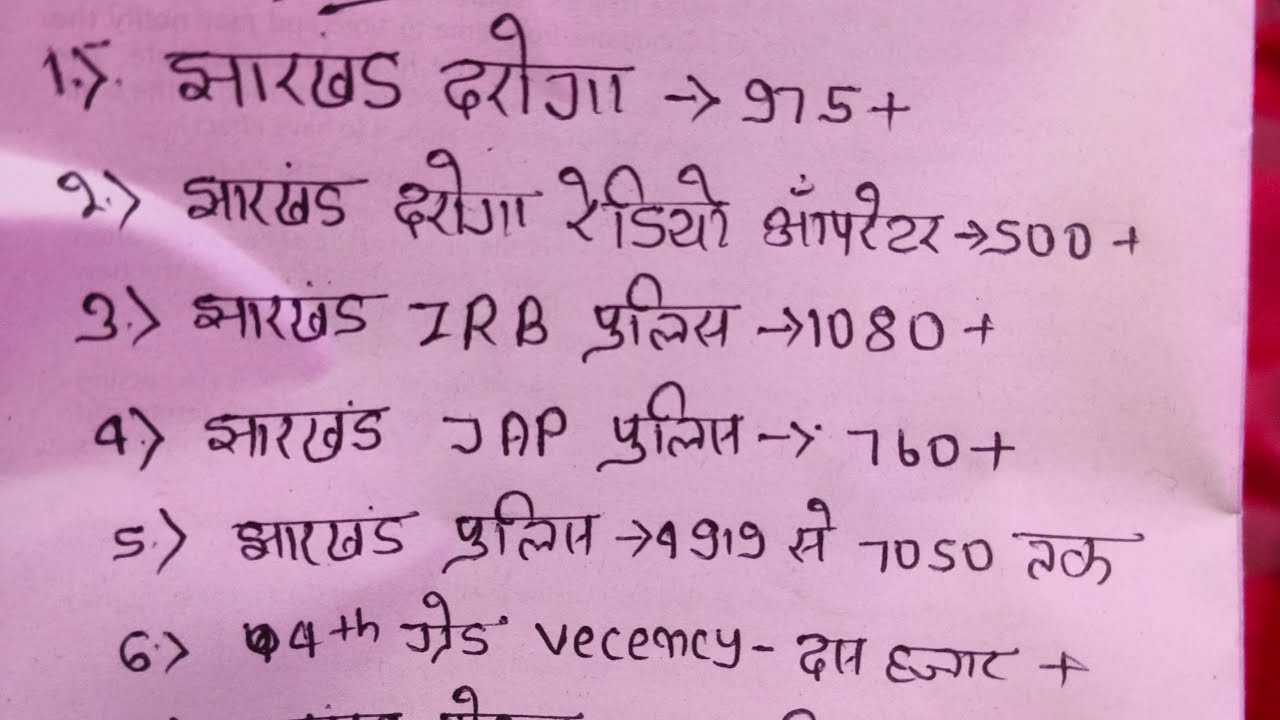 1.> झारखंड दरोगा → 975+
2.> झारखंड दरोगा रेडियो ऑपरेटर → 500 +
3.> झारखंड IRB पुलिस → 1080 +
4.> झारखंड JAP पुलिस → 760+
5.> झारखंड पुलिस → 4919 से 7050 तक
6.> 4th ग्रेड vecency - दस हजार +